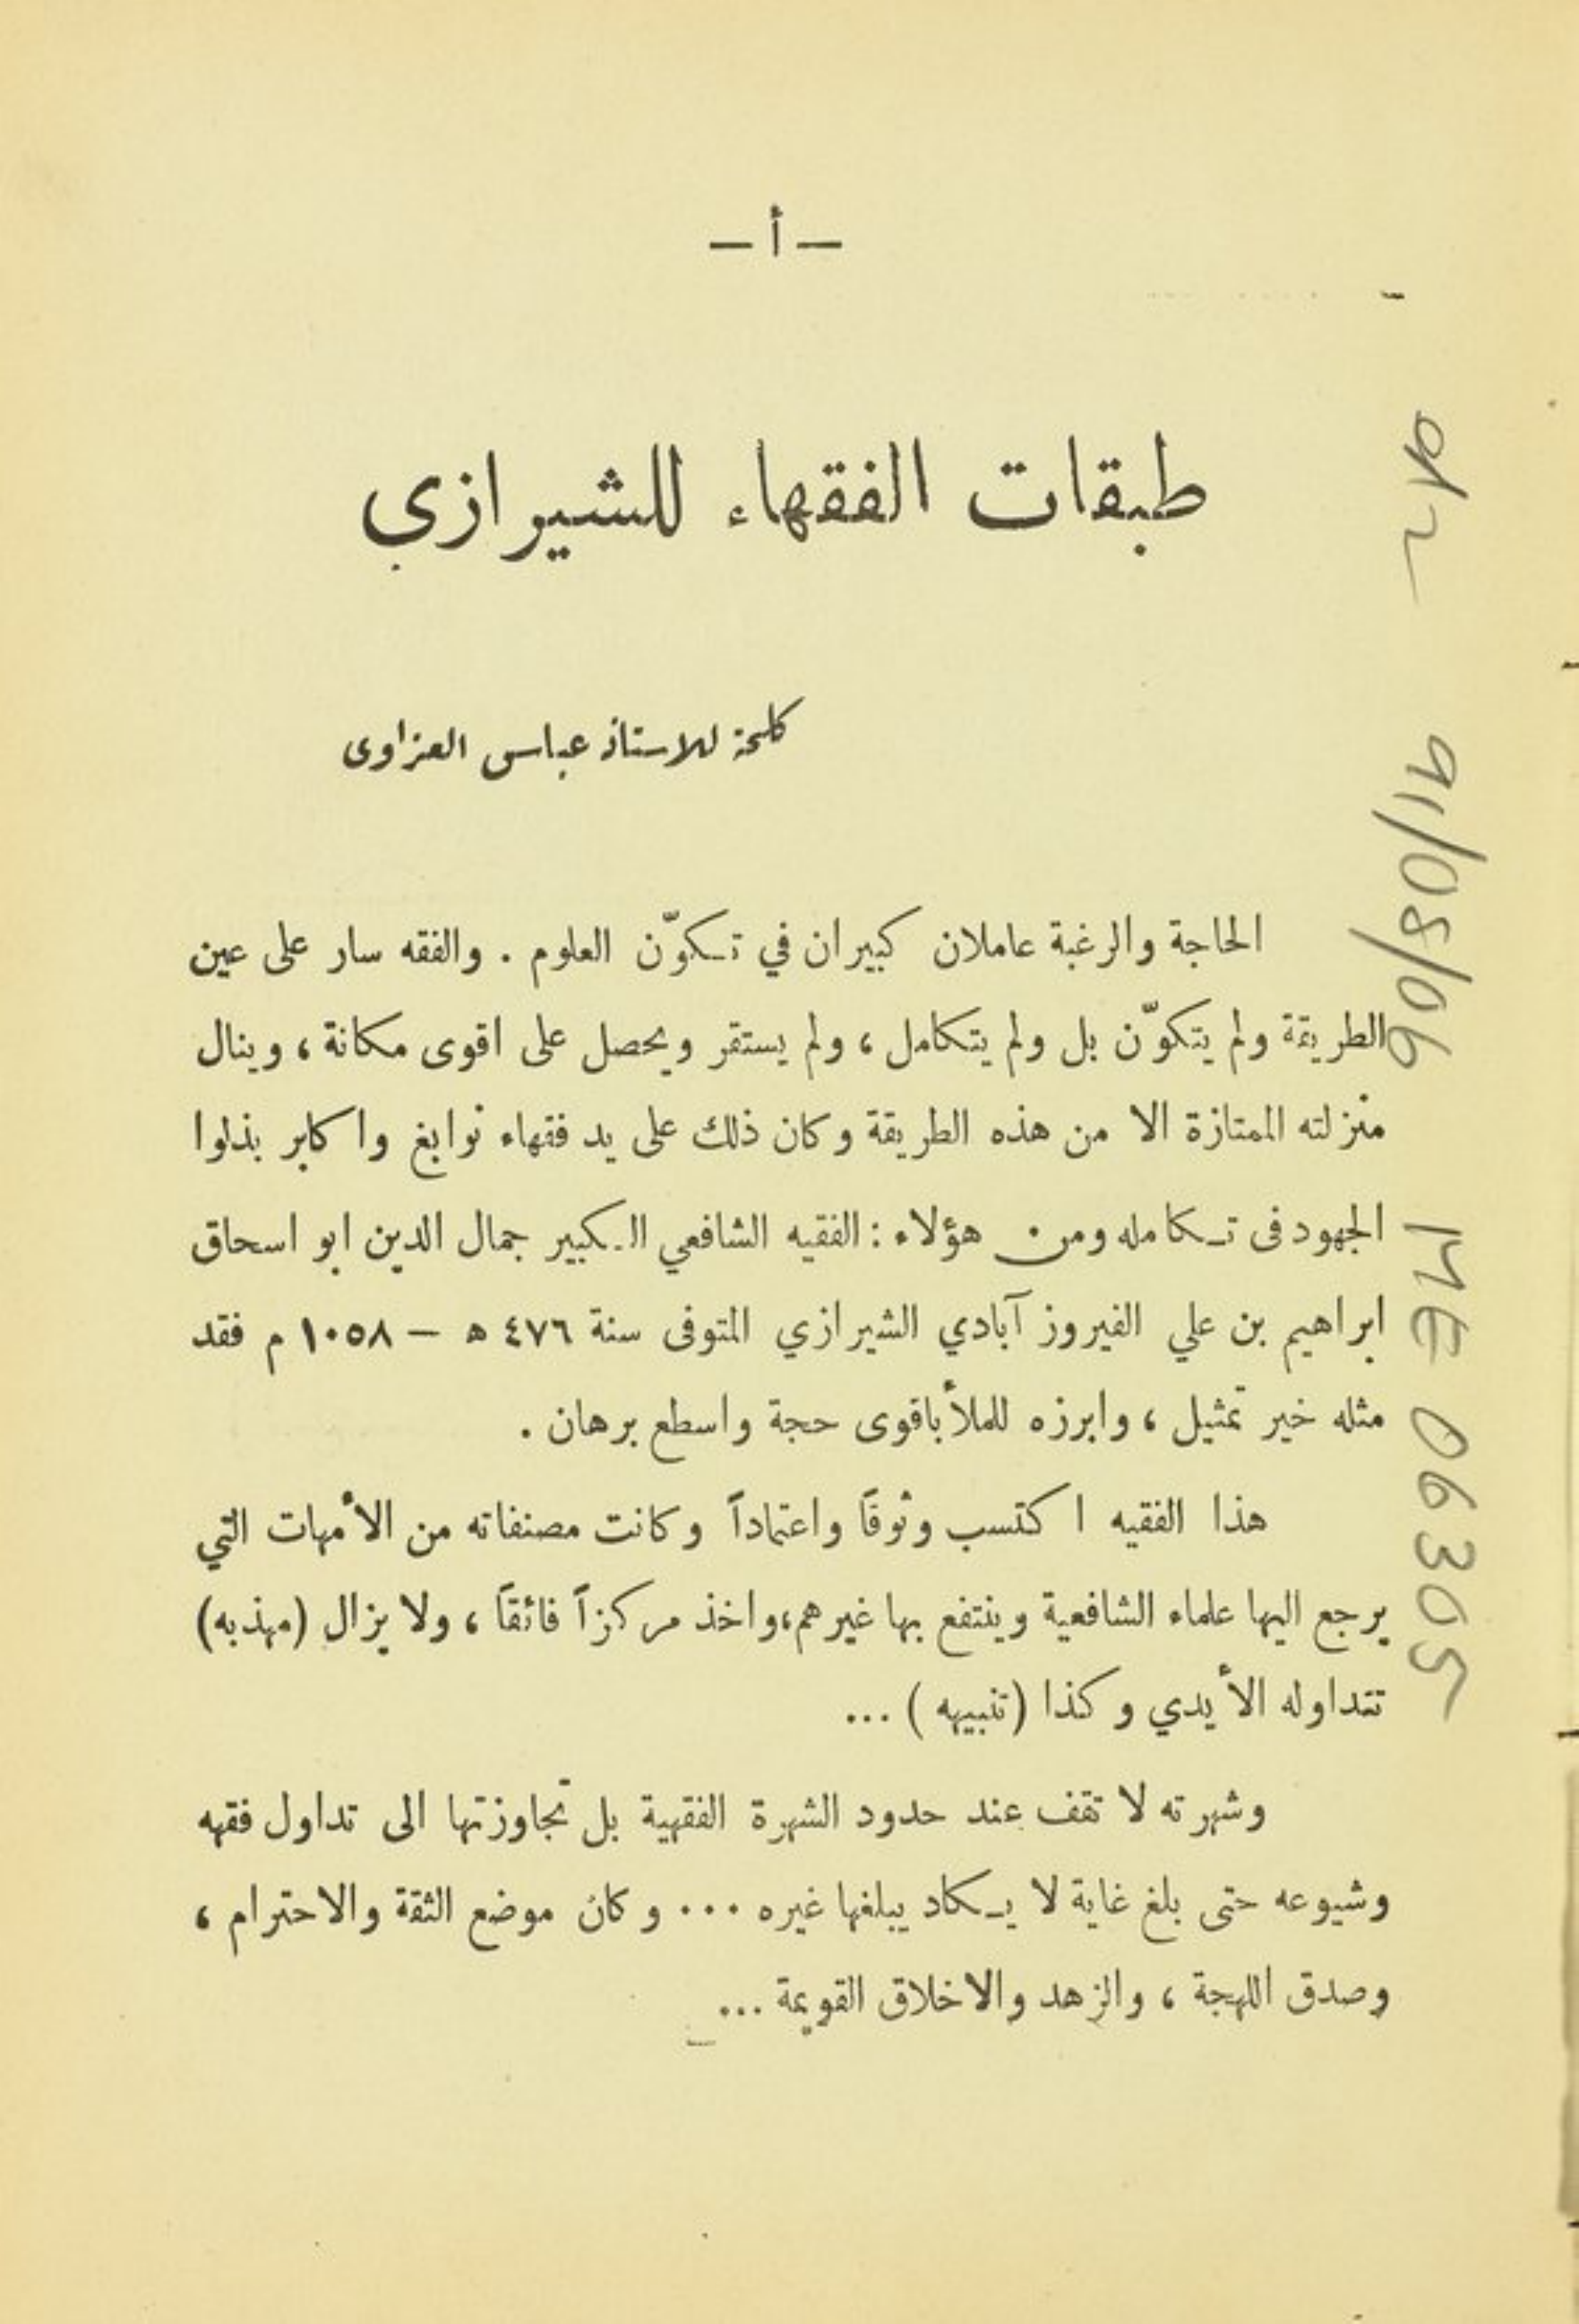 — أ —
طبقات الفقهاء للشيرازي
كلمة للاستاذ عباس العزاوى
الحاجة والرغبة عاملان كبيران في تكوّن العلوم . والفقه سار على عين
الطريقة ولم يتكوّن بل ولم يتكامل ، ولم يستقر ويحصل على اقوى مكانة ، وينال
منزلته الممتازة الا من هذه الطريقة وكان ذلك على يد فقهاء نوابغ واكابر بذلوا
الجهود فى تكامله ومن هؤلاء : الفقيه الشافعي الكبير جمال الدين ابو اسحاق
ابراهيم بن علي الفيروز آبادي الشيرازي المتوفى سنة ٤٧٦ ه – ١٠٥٨ م فقد
مثله خير تمثيل ، وابرزه للملأ باقوى حجة واسطع برهان .
هذا الفقيه اكتسب وثوقاً واعتماداً وكانت مصنفاته من الأمهات التي
يرجع اليها علماء الشافعية وينتفع بها غيرهم ، واخذ مركزاً فائقاً ، ولا يزال (مهذبه)
تتداوله الأيدي وكذا (تنبيهه) ...
وشهرته لا تقف عند حدود الشهرة الفقهية بل تجاوزتها الى تداول فقهه
وشيوعه حتى بلغ غاية لا يكاد يبلغها غيره ... وكان موضع الثقة والاحترام ،
وصدق اللهجة ، والزهد والاخلاق القويمة ...
91/08/06
ME 06305